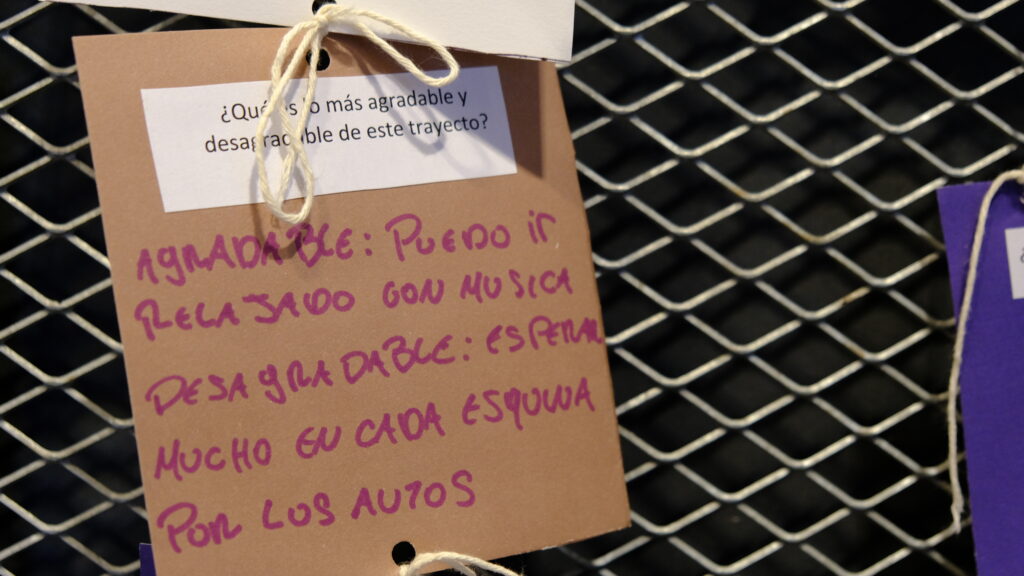 ¿Qué es lo más agradable y
desagradable de este trayecto?
AGRADABLE: PUEDO ir
RELAJADO CON MUSICA
DESAGRADABLE: ESPERAR
MUCHO EN CADA ESQUINA
POR LOS AUTOS